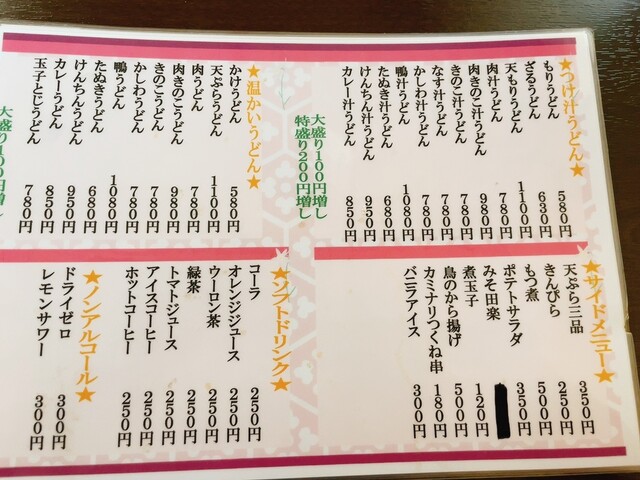 ★つけ汁うどん★
もりうどん 580円
ざるうどん 630円
天もりうどん 1100円
肉汁うどん 780円
肉きのこ汁うどん 980円
きのこ汁うどん 780円
なす汁うどん 780円
かしわ汁うどん 780円
鴨汁うどん 1080円
たぬき汁うどん 680円
けんちん汁うどん 950円
カレー汁うどん 850円
大盛り100円増し
特盛り200円増し
★温かいうどん★
かけうどん 580円
天ぷらうどん 1100円
肉うどん 780円
肉きのこうどん 980円
きのこうどん 780円
かしわうどん 780円
鴨うどん 1080円
たぬきうどん 680円
けんちんうどん 950円
カレーうどん 850円
玉子とじうどん 780円
大盛り100円増し
★サイドメニュー★
天ぷら三品 350円
きんぴら 250円
もつ煮 500円
ポテトサラダ 350円
みそ田楽
煮玉子 120円
鳥のから揚げ 500円
カミナリつくね串 180円
バニラアイス 300円
★ソフトドリンク★
コーラ 250円
オレンジジュース 250円
ウーロン茶 250円
緑茶 250円
トマトジュース 250円
アイスコーヒー 250円
ホットコーヒー 250円
★ノンアルコール★
ドライゼロ 300円
レモンサワー 300円